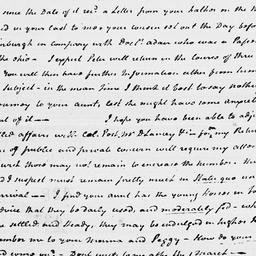 since the Date of it rec'd a Letter from your father on the
and in your cool to was your cousin set out the Day before
burgh in company with Doc'r Adam who was a Passen
the Ohio — I expect Pele will return in the Course of three
You will then have further Information either from
Subject — in the mean Time I think it best to say nothing
journey to your aunt, lest she might have some
of it — I hope you have been able to adj
affairs with Col. Post, Mr Delancey &
of public and private concern will require my atten
which there may not remain to encrease the number. Her
I suspect must remain pretty much in Statu quo un
arrival — I find your aunt has the young Horses in
advice that they be daily used, and moderately fed — wh
are settled and steady, they may be indulged in higher
remember me to your Momma and Peggy — How do your
and come on? — Dont wait longer after the March —